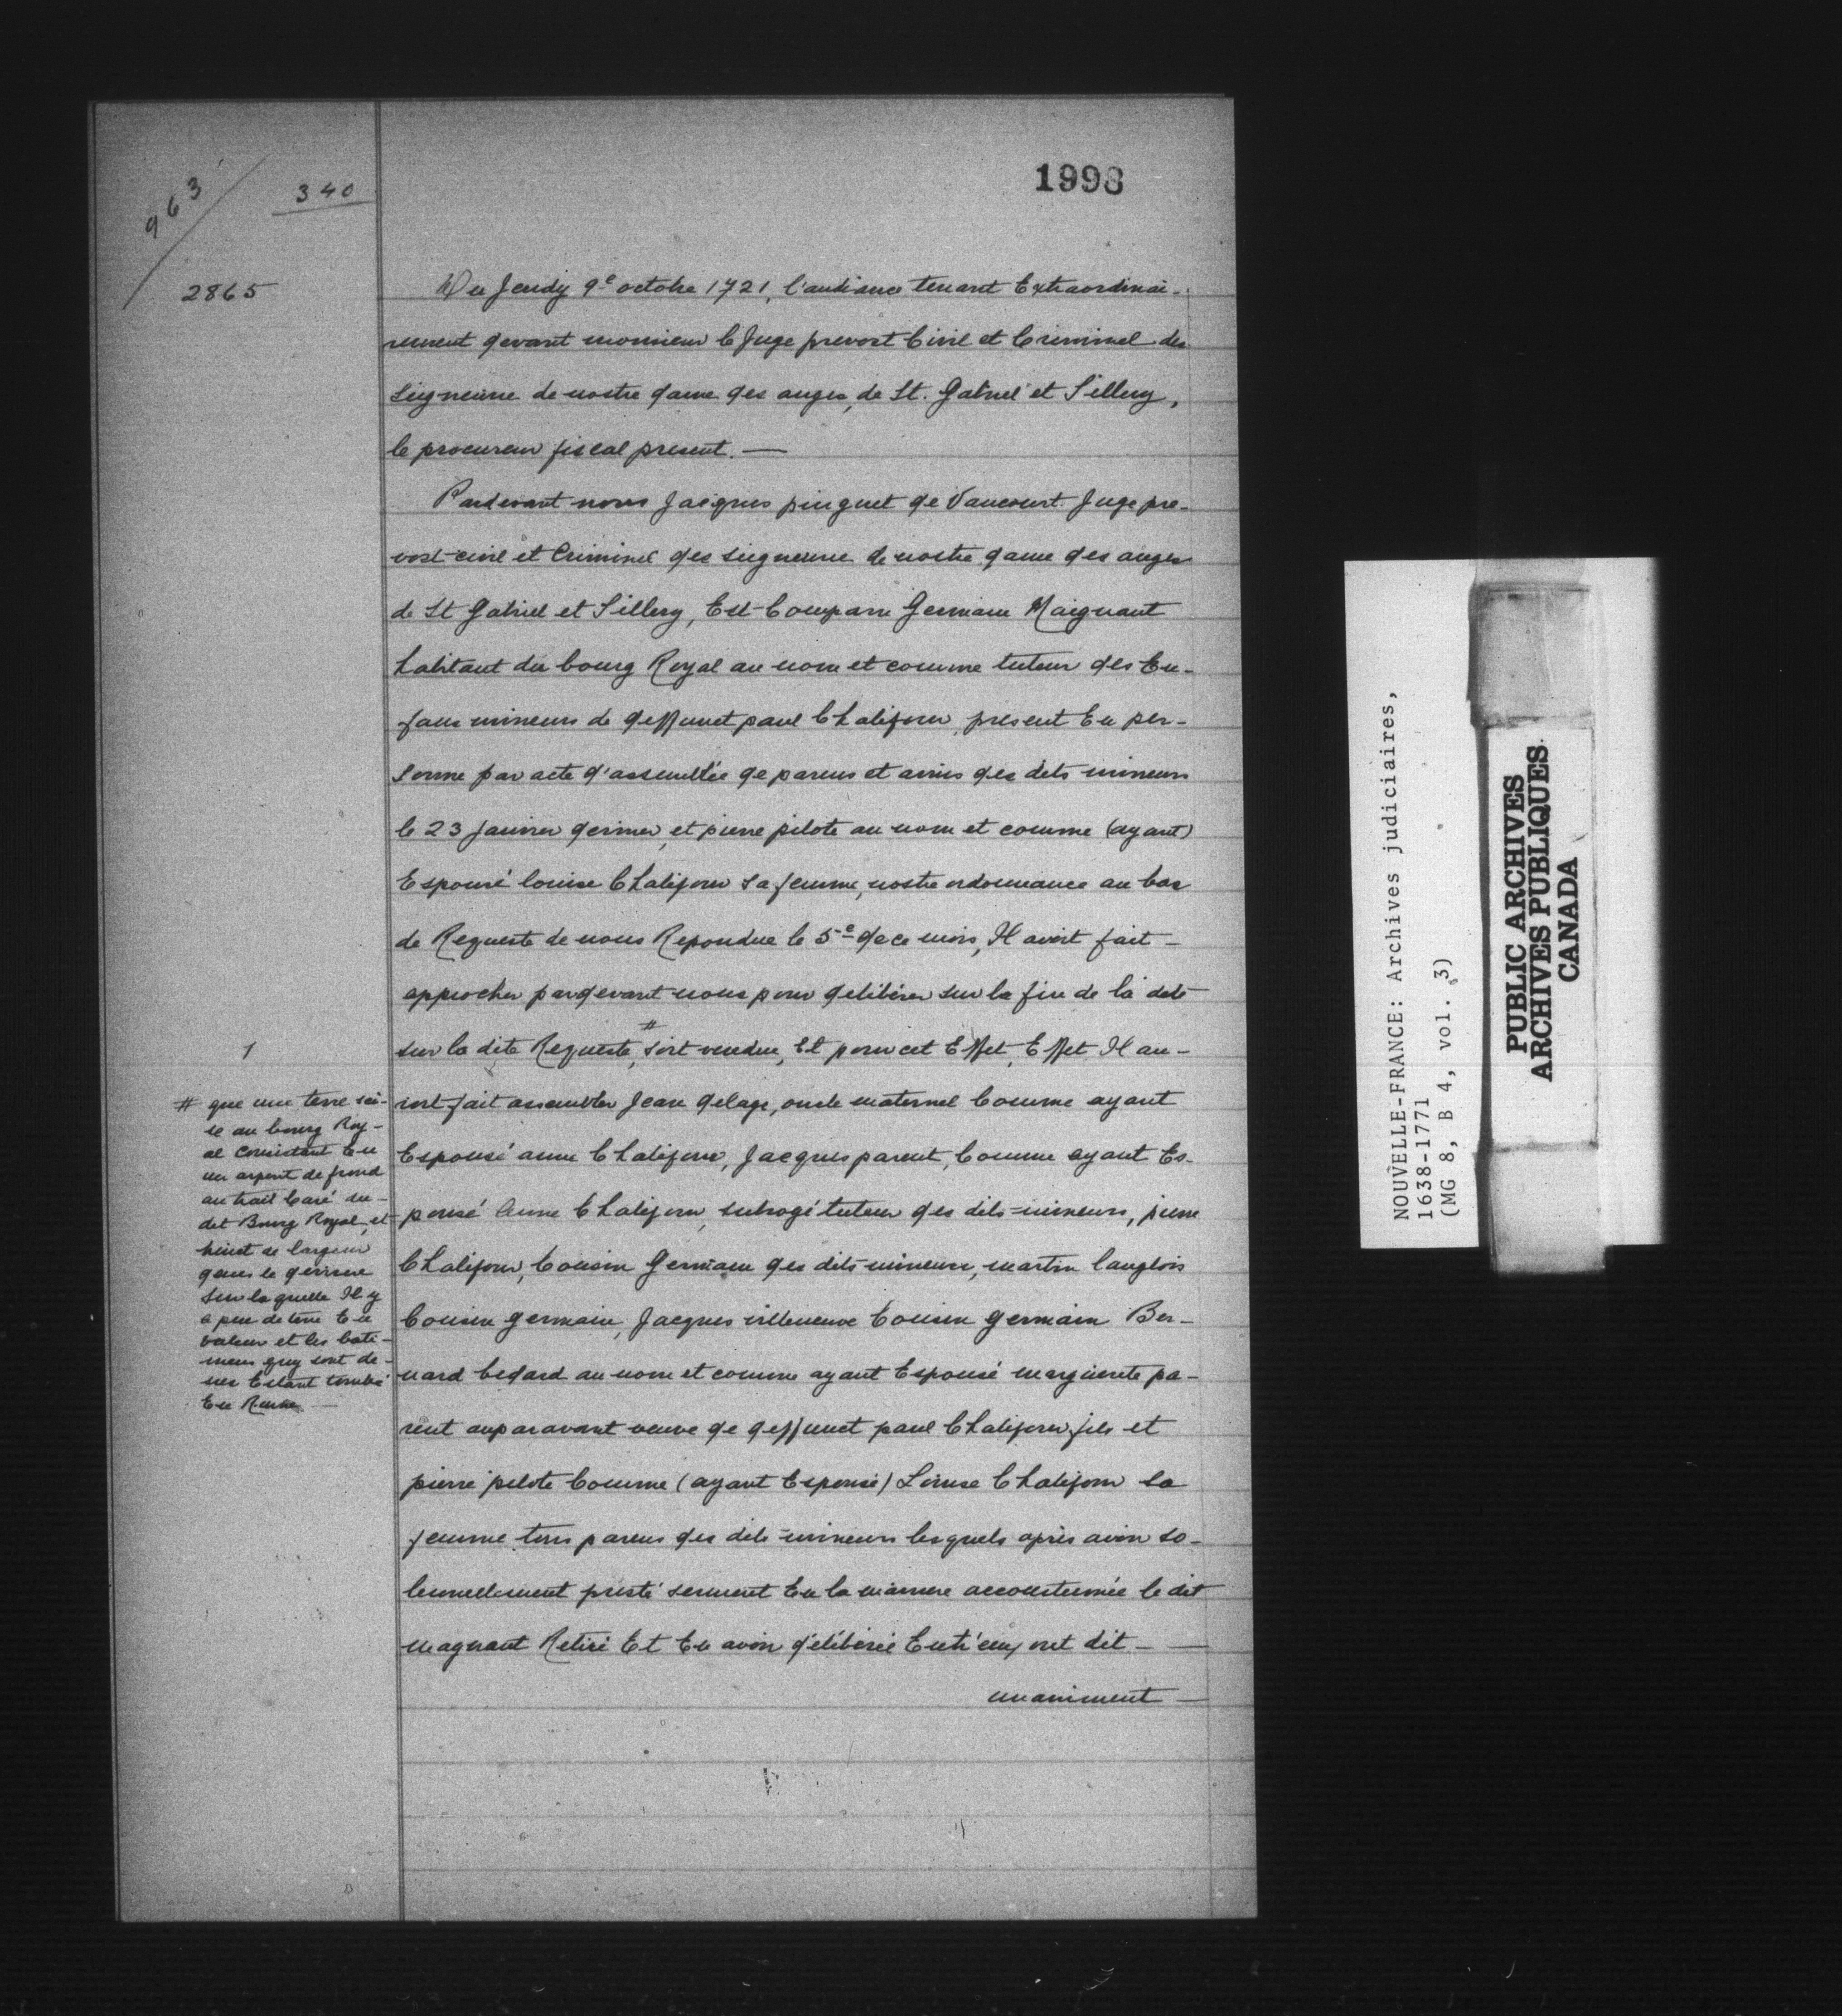 963
340
1998
2865
Du Jeudy 9e octobre 1721, l'audiance tenant Extraordinai-
rement devant monsieur le Juge prevost Civil et Criminel des
Seigneurie de nostre dame des anges, de St. Gabriel et Sillery,
le procureur fiscal present. —
Pardevant nous Jacques pinguet de Vaucourt Juge pre-
vost civil et Criminel des seigneurie de nostre dame des anges
de St Gabriel et Sillery, Est Comparu Germain Maignant
habitant du bourg Royal au nom et comme tuteur des En-
fans mineurs de deffunct paul Chalifour, present En per-
sonne par acte d'assemblée de parens et amis des dits mineurs
le 23 janvier dernier, et pierre pilote au nom et comme (ayant)
Espousé louise Chalifour sa femme, nostre ordonnance au bas
de Requeste de nous Repondue le 5e de ce mois, Il avoit fait
approcher pardevant nous pour deliberer sur la fin de la dite
1
sur la dite Requeste, # soit vendue, Et pour cet Effet, Effet Il au-
roit fait assembler Jean delage, oncle maternel Comme ayant
Espousé anne Chalifour, Jacques parent, Comme ayant Es-
pousé Anne Chalifour, subrogé tuteur des dits mineurs, pierre
Chalifour, Cousin Germain des dits mineurs, martin langlois
Cousin germain, Jacques villeneuve Cousin germain Ber-
nard bedard au nom et comme ayant Espousé marguerite pa-
rent auparavant veuve de deffunct paul Chalifour fils et
pierre pilote Comme (ayant Espousé) Louise Chalifour sa
femme tous parens des dits mineurs lesquels après avoir so-
lennellement presté serment En la maniere accoustumée le dit
magnant Retiré Et En avoir délibérée Entr'eux ont dit —
unaniment —
# que une terre sci-
se au bourg Roy-
al Consistant En
un arpent de frond
au trait Caré du-
dit Bourg Royal, et
huict de largeur
dans le
Sur laquelle Il y
a peu de terre En
valeur et les bati-
mens quy sont de-
sus Estant tombé
En Ruine —
NOUVELLE-FRANCE: Archives judiciaires,
1638-1771
(MG 8, B 4, vol. 3)
PUBLIC ARCHIVES
ARCHIVES PUBLIQUES
CANADA